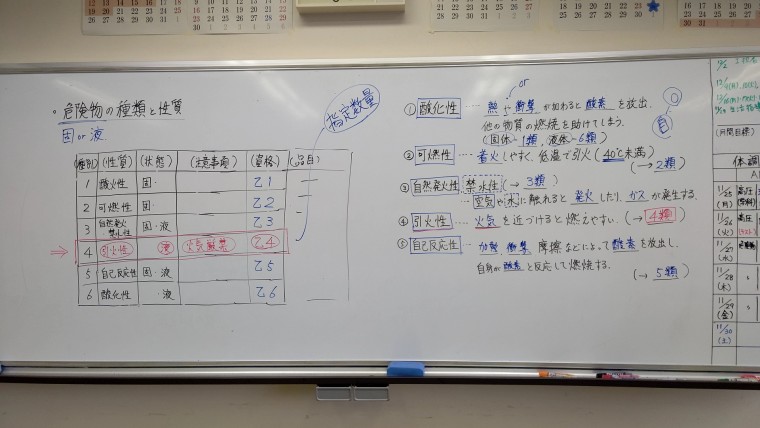 。危険物の種類と性質
固 or 液
指定数量
(種別) (性質) (状態) (注意事項) (資格) (品目)
1 酸火性 固・ 乙1
2 可燃性 固・ 乙2
3 自然発火 禁水性 固・液 乙3
4 引火性 液 火気厳禁 乙4
5 自己反応性 固・液 乙5
6 酸化性 ・液 乙6
or
① 酸化性 … 熱や衝撃が加わると酸素を放出、
他の物質の燃焼を助けてしまう。
(固体→1類, 液体→6類)
② 可燃性 … 着火しやすく、低温で引火(40℃未満)
(→2類)
③ 自然発火性 禁水性 (→3類)
… 空気や水に触れると発火したり、ガスが発生する。
④ 引火性 … 火気を近づけると燃えやすい。(→4類)
⑤ 自己反応性 … 加熱、衝撃、摩擦などによって酸素を放出し、
自身が酸素と反応して燃焼する。
(→5類)
(月間目標)
体調
11/25 (月)
11/26 (火)
11/27 (水)
11/28 (木)
11/29 (金)
11/30 (土)